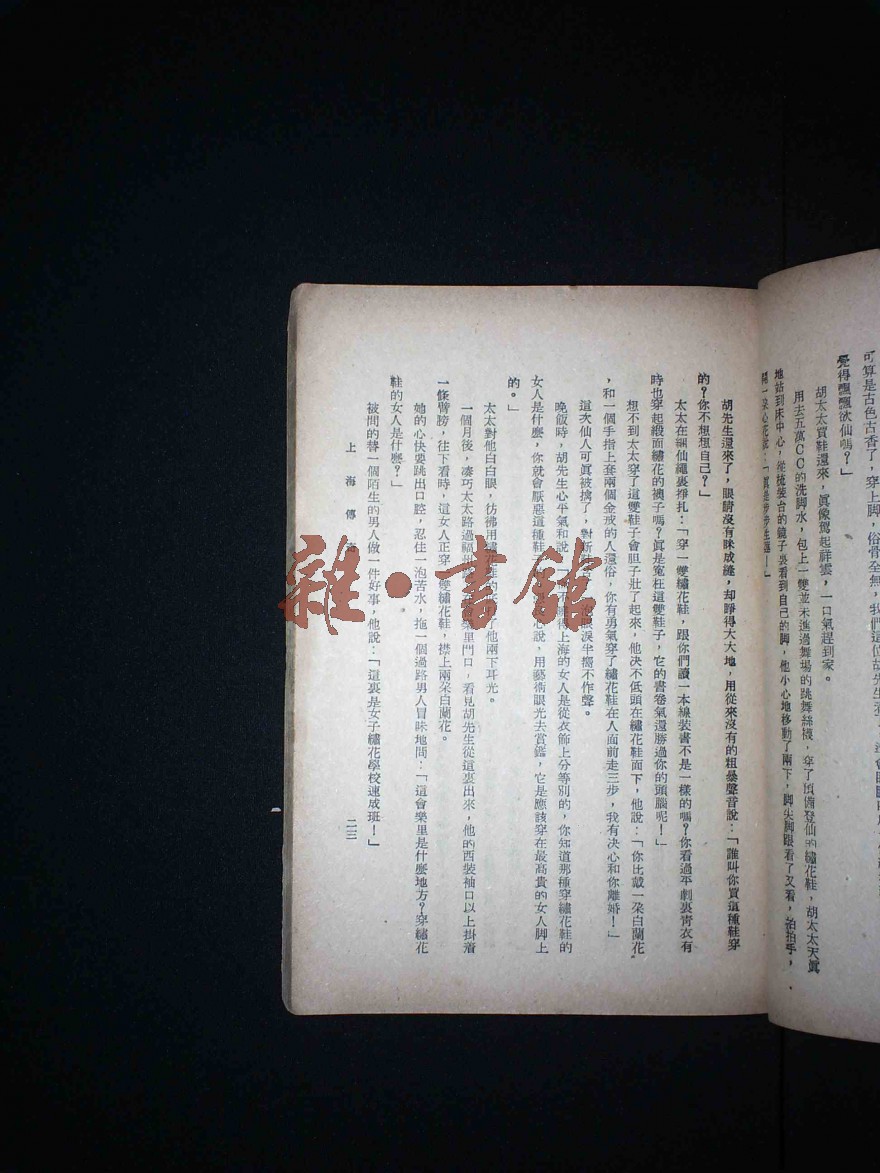 可算是古色古香了，穿上脚，俗骨全無，我們這位胡先生
覺得飄飄欲仙嗎？」
胡太太買鞋還來，眞像駕起祥雲，一口氣趕到家。
用去五萬ＣＣ的洗脚水，包上一雙並未進過舞場的跳舞絲襪，穿了預備登仙的繡花鞋，胡太太天眞
地站到床中心，從梳裝台的鏡子裏看到自己的脚，他小心地移動了兩下，脚尖脚跟看了又看，拍拍手，
胡先生還來了，眼睛沒有眯成縫，却睜得大大地，用從來沒有的粗暴聲音說：「誰叫你買這種鞋穿
的？你不想想自己？」
太太在綑仙繩裏掙扎：「穿一雙繡花鞋，跟你們讀一本線裝書不是一樣的嗎？你看過平劇裏靑衣有
時也穿起緞面繡花的襖子嗎？眞是寃枉這雙鞋子，它的書卷氣還勝過你的頭腦呢！」
想不到太太穿了這雙鞋子會胆子壯了起來，他决不低頭在繡花鞋面下，他說：「你比戴一朶白蘭花
，和一個手指上套兩個金戒的人還俗，你有勇氣穿了繡花鞋在人面前走三步，我有决心和你離婚！」
這次仙人可眞被擒了，對新鞋 眼淚半嚮不作聲。
晚飯時，胡先生心平氣和說： 不 得上海的女人是從衣飾上分等別的，你知道那種穿繡花鞋的
女人是什麽，你就會厭惡這種鞋子 心說，用藝術眼光去賞鑑，它是應該穿在最高貴的女人脚上
的。」
太太對他白白眼，彷彿用繡花鞋的 了他兩下耳光。
一個月後，凑巧太太路過福州 樂里門口，看見胡先生從這裏出來，他的西裝袖口以上掛着
一條臂膀，往下看時，這女人正穿 雙繡花鞋，襟上兩朶白蘭花。
她的心快要跳出口腔，忍住一泡苦水，拖一個過路男人冒昧地問：「這會樂里是什麽地方？穿繡花
鞋的女人是什麽？」
被問的替一個陌生的男人做一件好事，他說：「這裏是女子繡花學校速成班！」
上海傳奇
二三
雜·書館